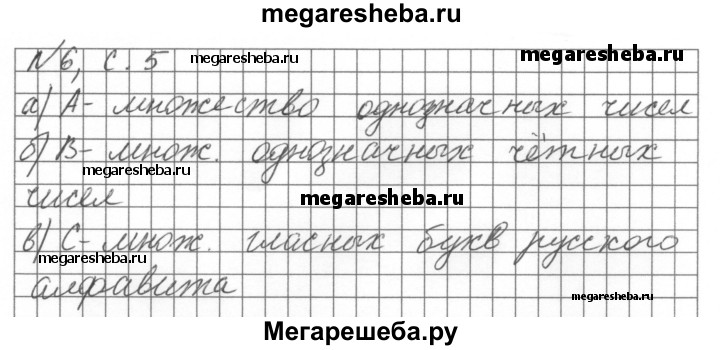 megaresheba.ru
№6, с. 5 megaresheba.ru megaresheba.ru
а) А- множество однозначных чисел
б) В- множ. однозначных чётных
megaresheba.ru
чисел megaresheba.ru
в) С- множ. гласных букв русского
megaresheba.ru
алфавита megaresheba.ru
Мегарешеба.ру